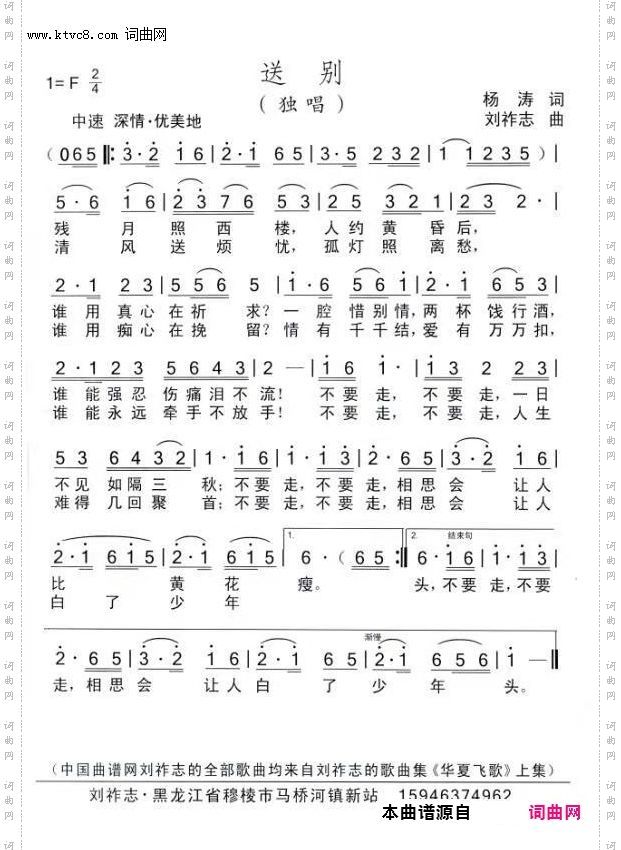 www.ktvc8.com 词曲网
送 别
1=F 2/4
（独唱）
杨 涛 词
中速 深情·优美地
刘祚志 曲
(065 ‖: 3·2 16 | 2·1 61 | 3·5 232 | 1 1235) |
5·6 16 | 2376 5 | 235 321 | 23 2· |
残 月 照 西 楼，人约黄昏后，
清 风 送 烦 忧，孤灯照离愁，
2·1 23 | 556 5 | 1·6 561 | 2· 653 |
谁用真心在祈 求？一腔惜别情，两杯饯行酒，
谁用痴心在挽 留？情有千千结，爱有万万扣，
2·123 5643 | 2 — | 16 1· | 13 2· | 2 123 |
谁能强忍伤痛泪不流！ 不要走，不要走，一日
谁能永远牵手不放手！ 不要走，不要走，人生
53 6432 | 1·16 | 1·13 | 2·65 | 3·2 16 |
不见如隔三 秋；不要走，不要走，相思会 让人
难得几回聚 首；不要走，不要走，相思会 让人
1.
2. 结束句
2·1 615 | 6· (65 :‖ 6·16 | 1·13 |
比 黄花 瘦。 头，不要走，不要
白了少年
渐慢
2·65 | 3·2 16 | 2·1 65 | 2·1 | 615 6 | 1 — ‖
走，相思会 让人白 了 少年 头。
（中国曲谱网刘祚志的全部歌曲均来自刘祚志的歌曲集《华夏飞歌》上集）
刘祚志·黑龙江省穆棱市马桥河镇新站 15946374962
本曲谱源自 词曲网